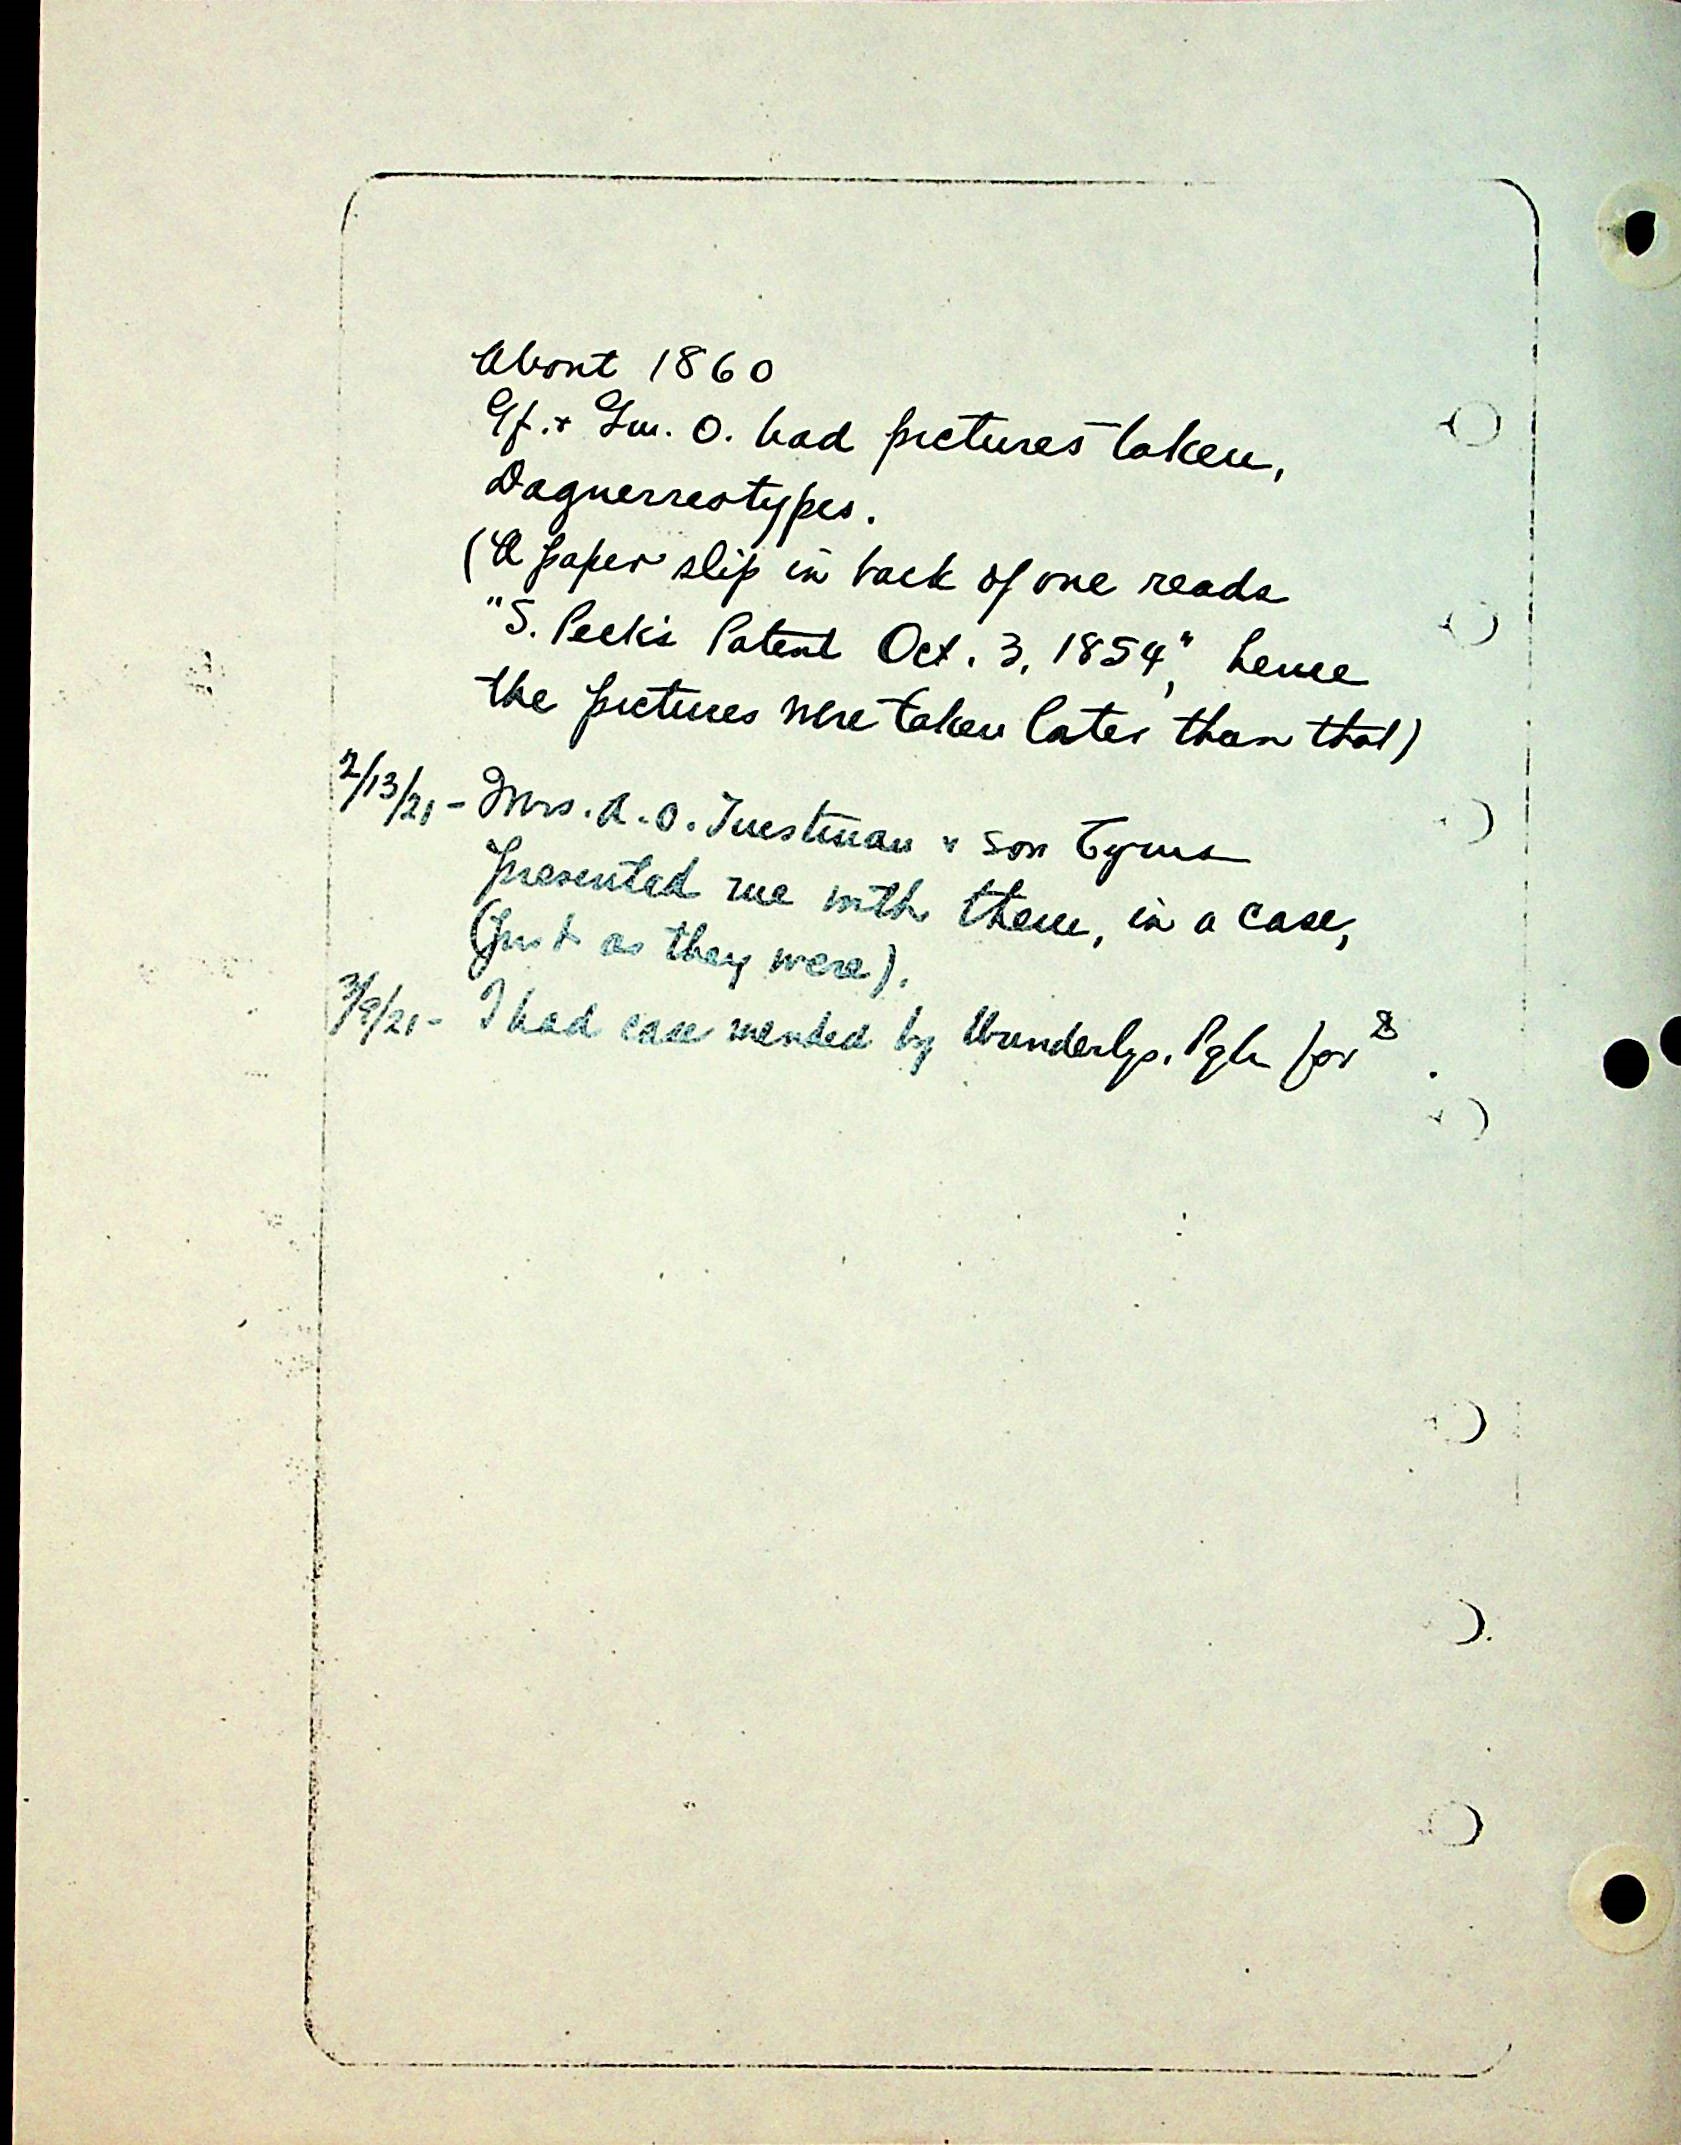 About 1860
Gf. & Gm. O. had pictures taken,
Daguerreotypes.
(A paper slip in back of one reads
"S. Peck's Patent Oct. 3, 1854", hence
the pictures were taken later than that)
2/13/21 - Mrs. A. O. & son Cyrus
presented me with them, in a case,
(just as they were).
3/9/21 - I had case mended by Wunderlys, Pgh for